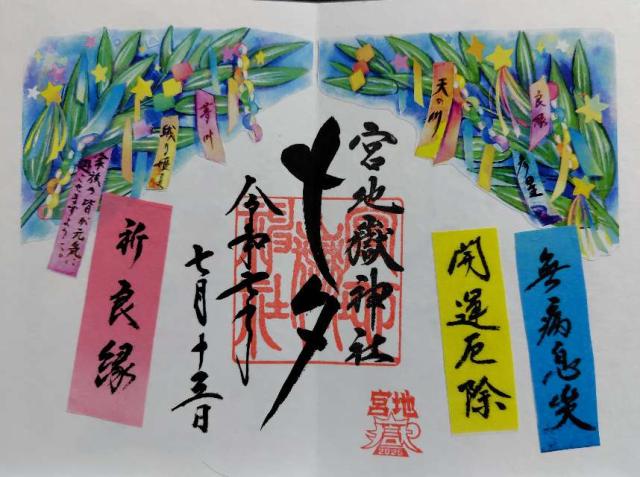 良縁
天の川
無病息災
開運厄除
宮地嶽神社
七夕
令和七年
七月十三日
宮地嶽
2025
織り姫
家族の皆が元気に
過ごせますように
祈良縁